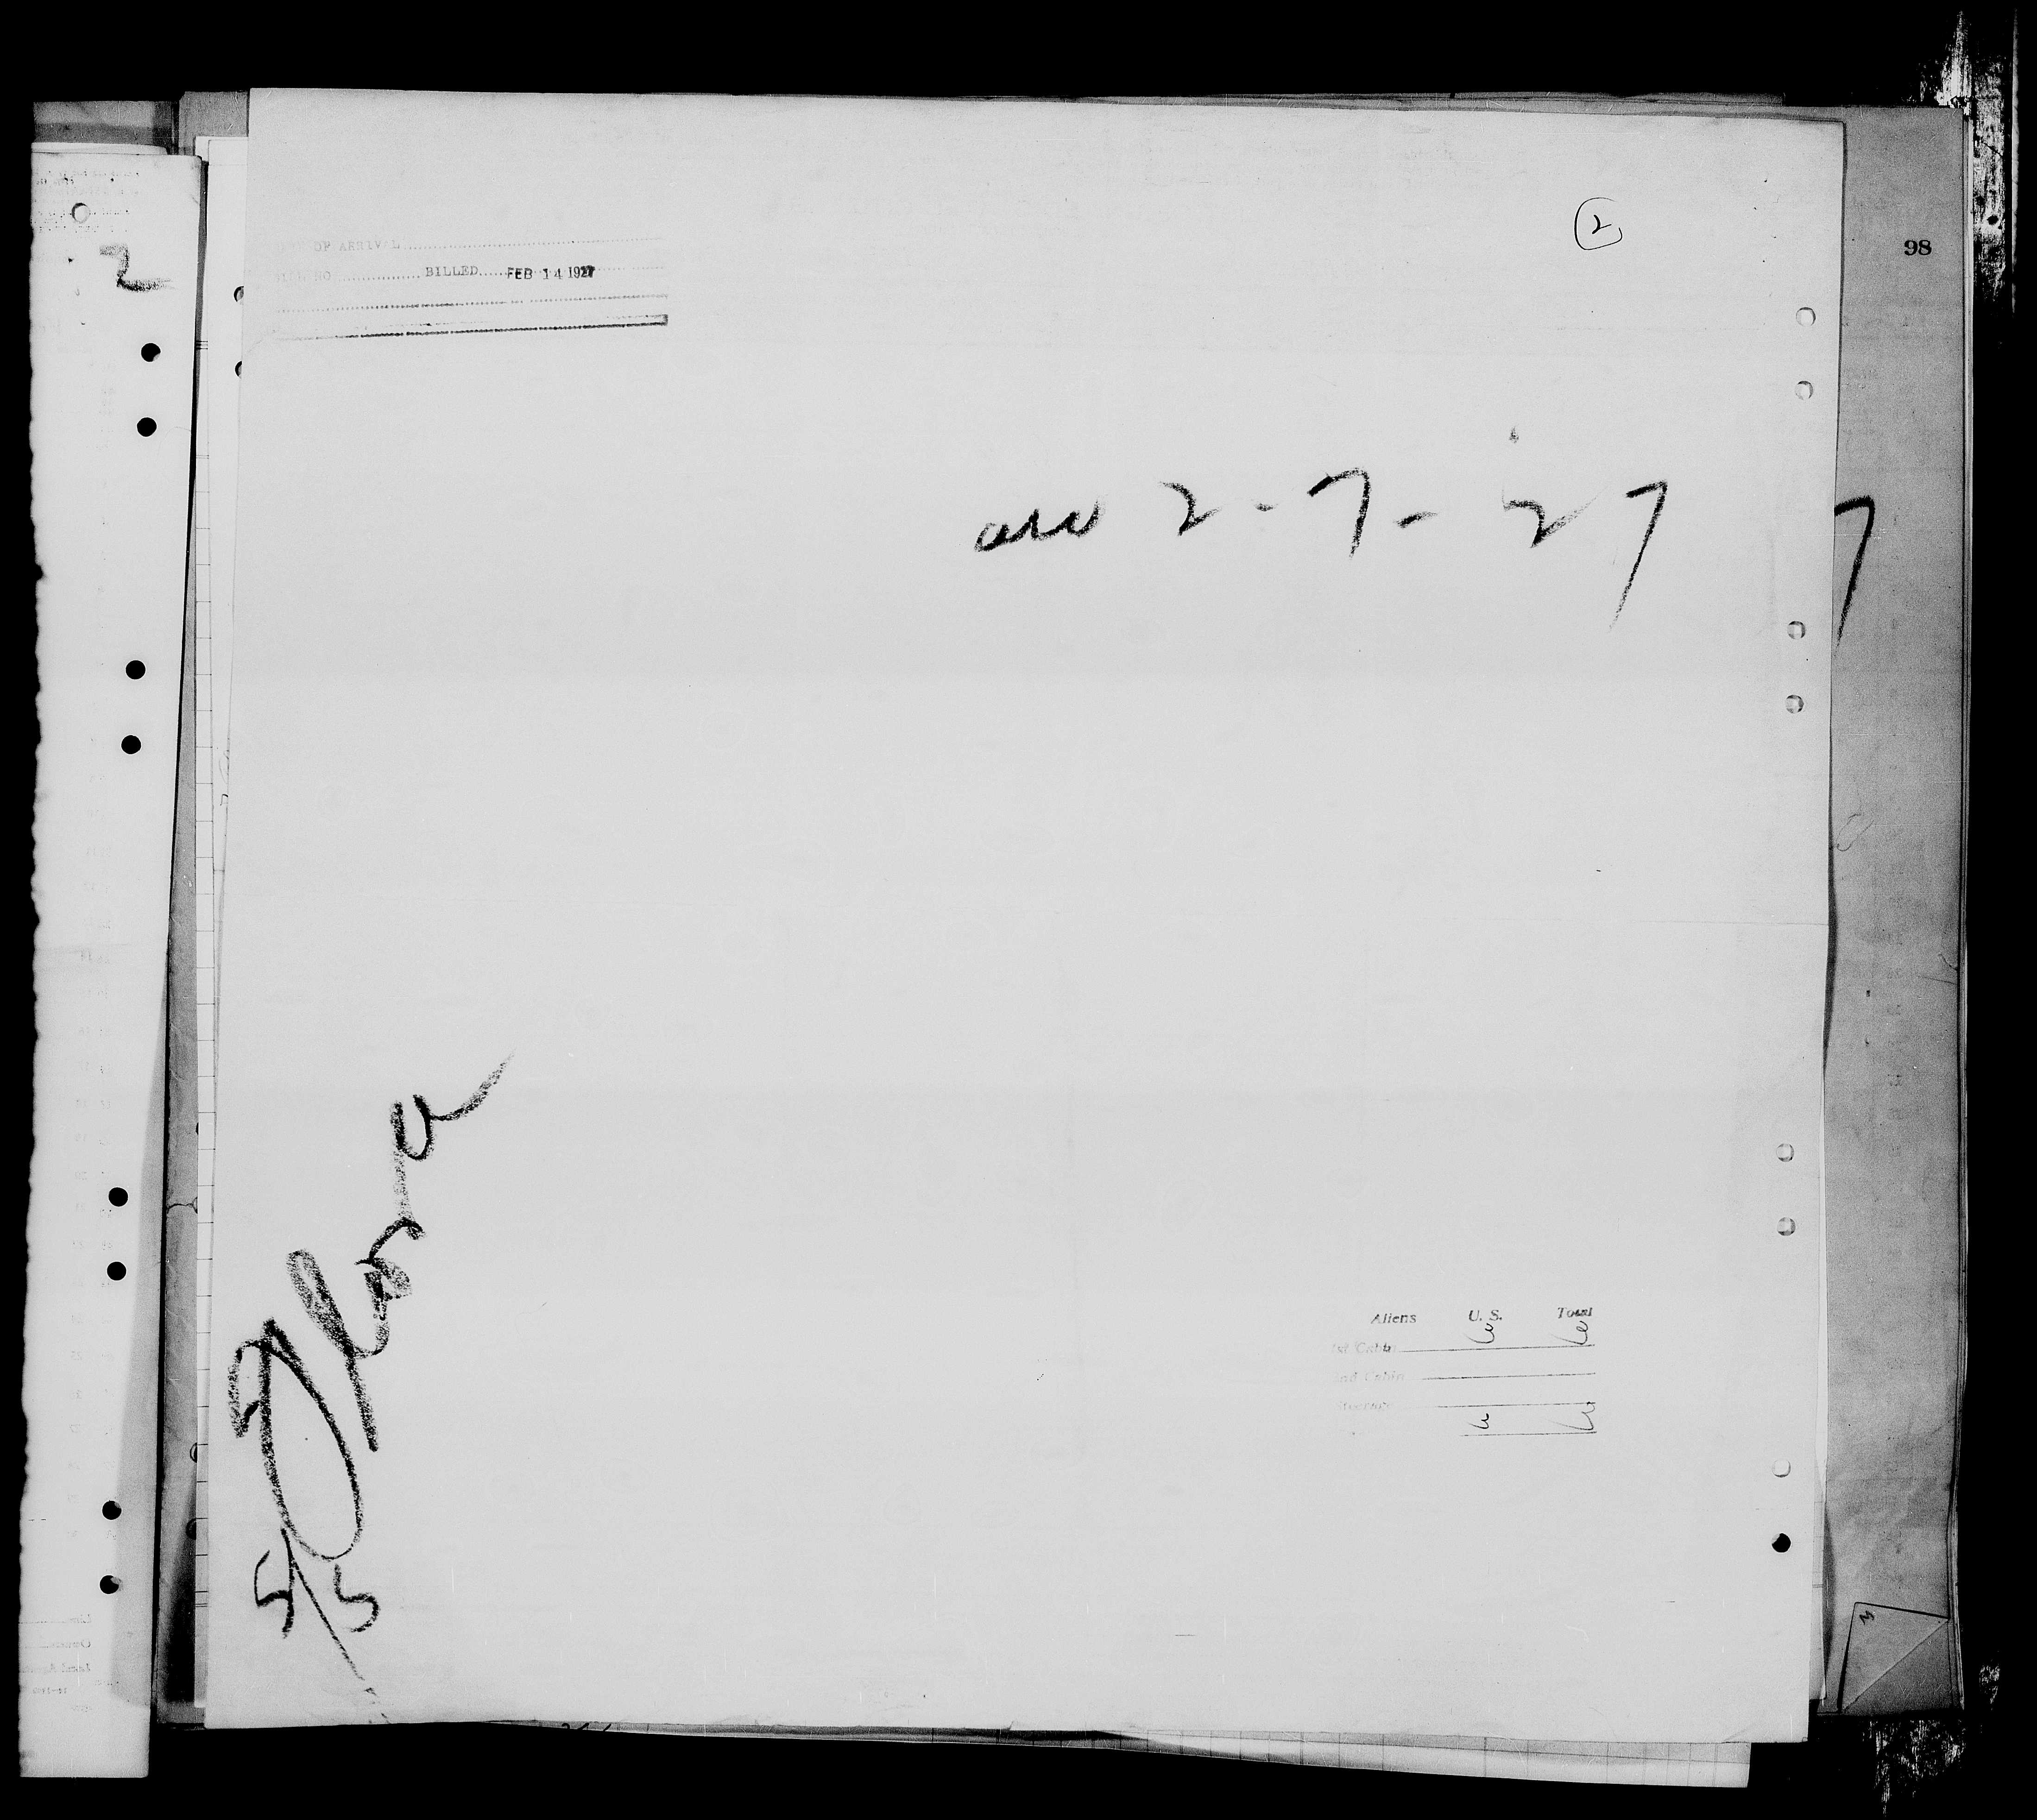 2
98
OF ARRIVAL
BILLED FEB 14 1927
arr 2-7-27
7
Flora
5/5
Aliens U.S. Total
1st Cabin 6 6
2nd Cabin
Steerage
6 6
2